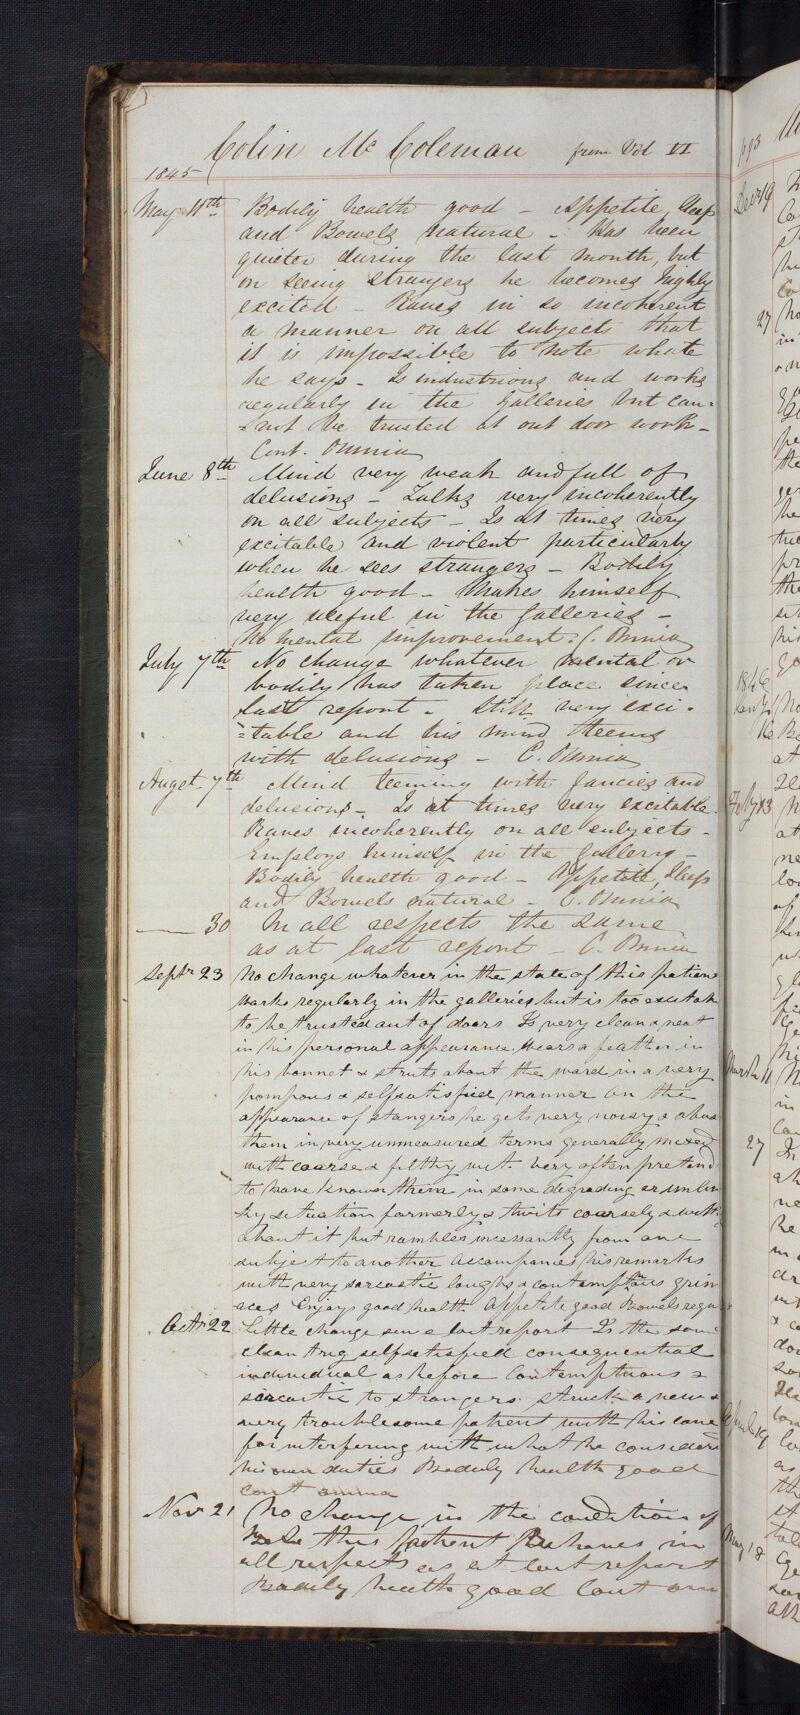 Colin Mc Coleman from Vol VI
1845
May 11th Bodily health good - Appetite, Sleep
and Bowels natural - Has been
quieter during the last month, but
on seeing strangers he becomes highly
excited - Raves in so incoherent
a manner on all subjects that
it is impossible to note whate
he says - Is industrious and works
regularly in the Galleries but can=
=not be trusted at out door work -
Cont. Omnia
June 8th Mind very weak and full of
delusions - Talks very incoherently
on all subjects - Is at times very
excitable and violent particularly
when he sees strangers - Bodily
health good - Makes himself
very useful in the Galleries -
No mental improvement. C. Omnia
July 7th No change whatever mental or
bodily has taken place since
last report - Still very exci=
=table and his mind teems
with delusions - C. Omnia
Augst. 7th Mind teeming with fancies and
delusions - Is at times very excitable -
Raves incoherently on all subjects -
Employs himself in the Gallery -
Bodily health good - Appetite, Sleep
and Bowels natural - C. Omnia
30 In all respects the same
as at last report - C. Omnia
Septr 23 No change whatever in the state of this patient
works regularly in the galleries but is too excitable
to be trusted out of doors Is very clean & neat
in his personal appearance. Wears a feather in
his bonnet & struts about the ward in a very
pompous & selfsatisfied manner on the
appearance of stangers he gets very noisy & abus
them in very unmeasured terms generally mixed
with coarse & filthy wit. Very often pretend
to have known them in some degrading or unlin
situation formerly & twits coarsely &
about it but rambles incessantly from one
subject to another accompanies his remarks
with very sarcastic laughs & contemptous grim
aces Enjoys good health Appetite good Bowels regu
Octr 22 Little change since last report Is the same
clean trig selfsatisfied consequential
individual as before Contemptuous &
sarcastic to strangers. struck a new &
very troublesome patient with his cane
for interfering with what he considers
his own duties Bodily health good
cont omnia
Nov 21 No change in the condition of
this patient Behaves in
all respects as at last report
Bodily health good Cont om
Decr 19
27
1846
Feby 13
March 11
27
April 19
May 18